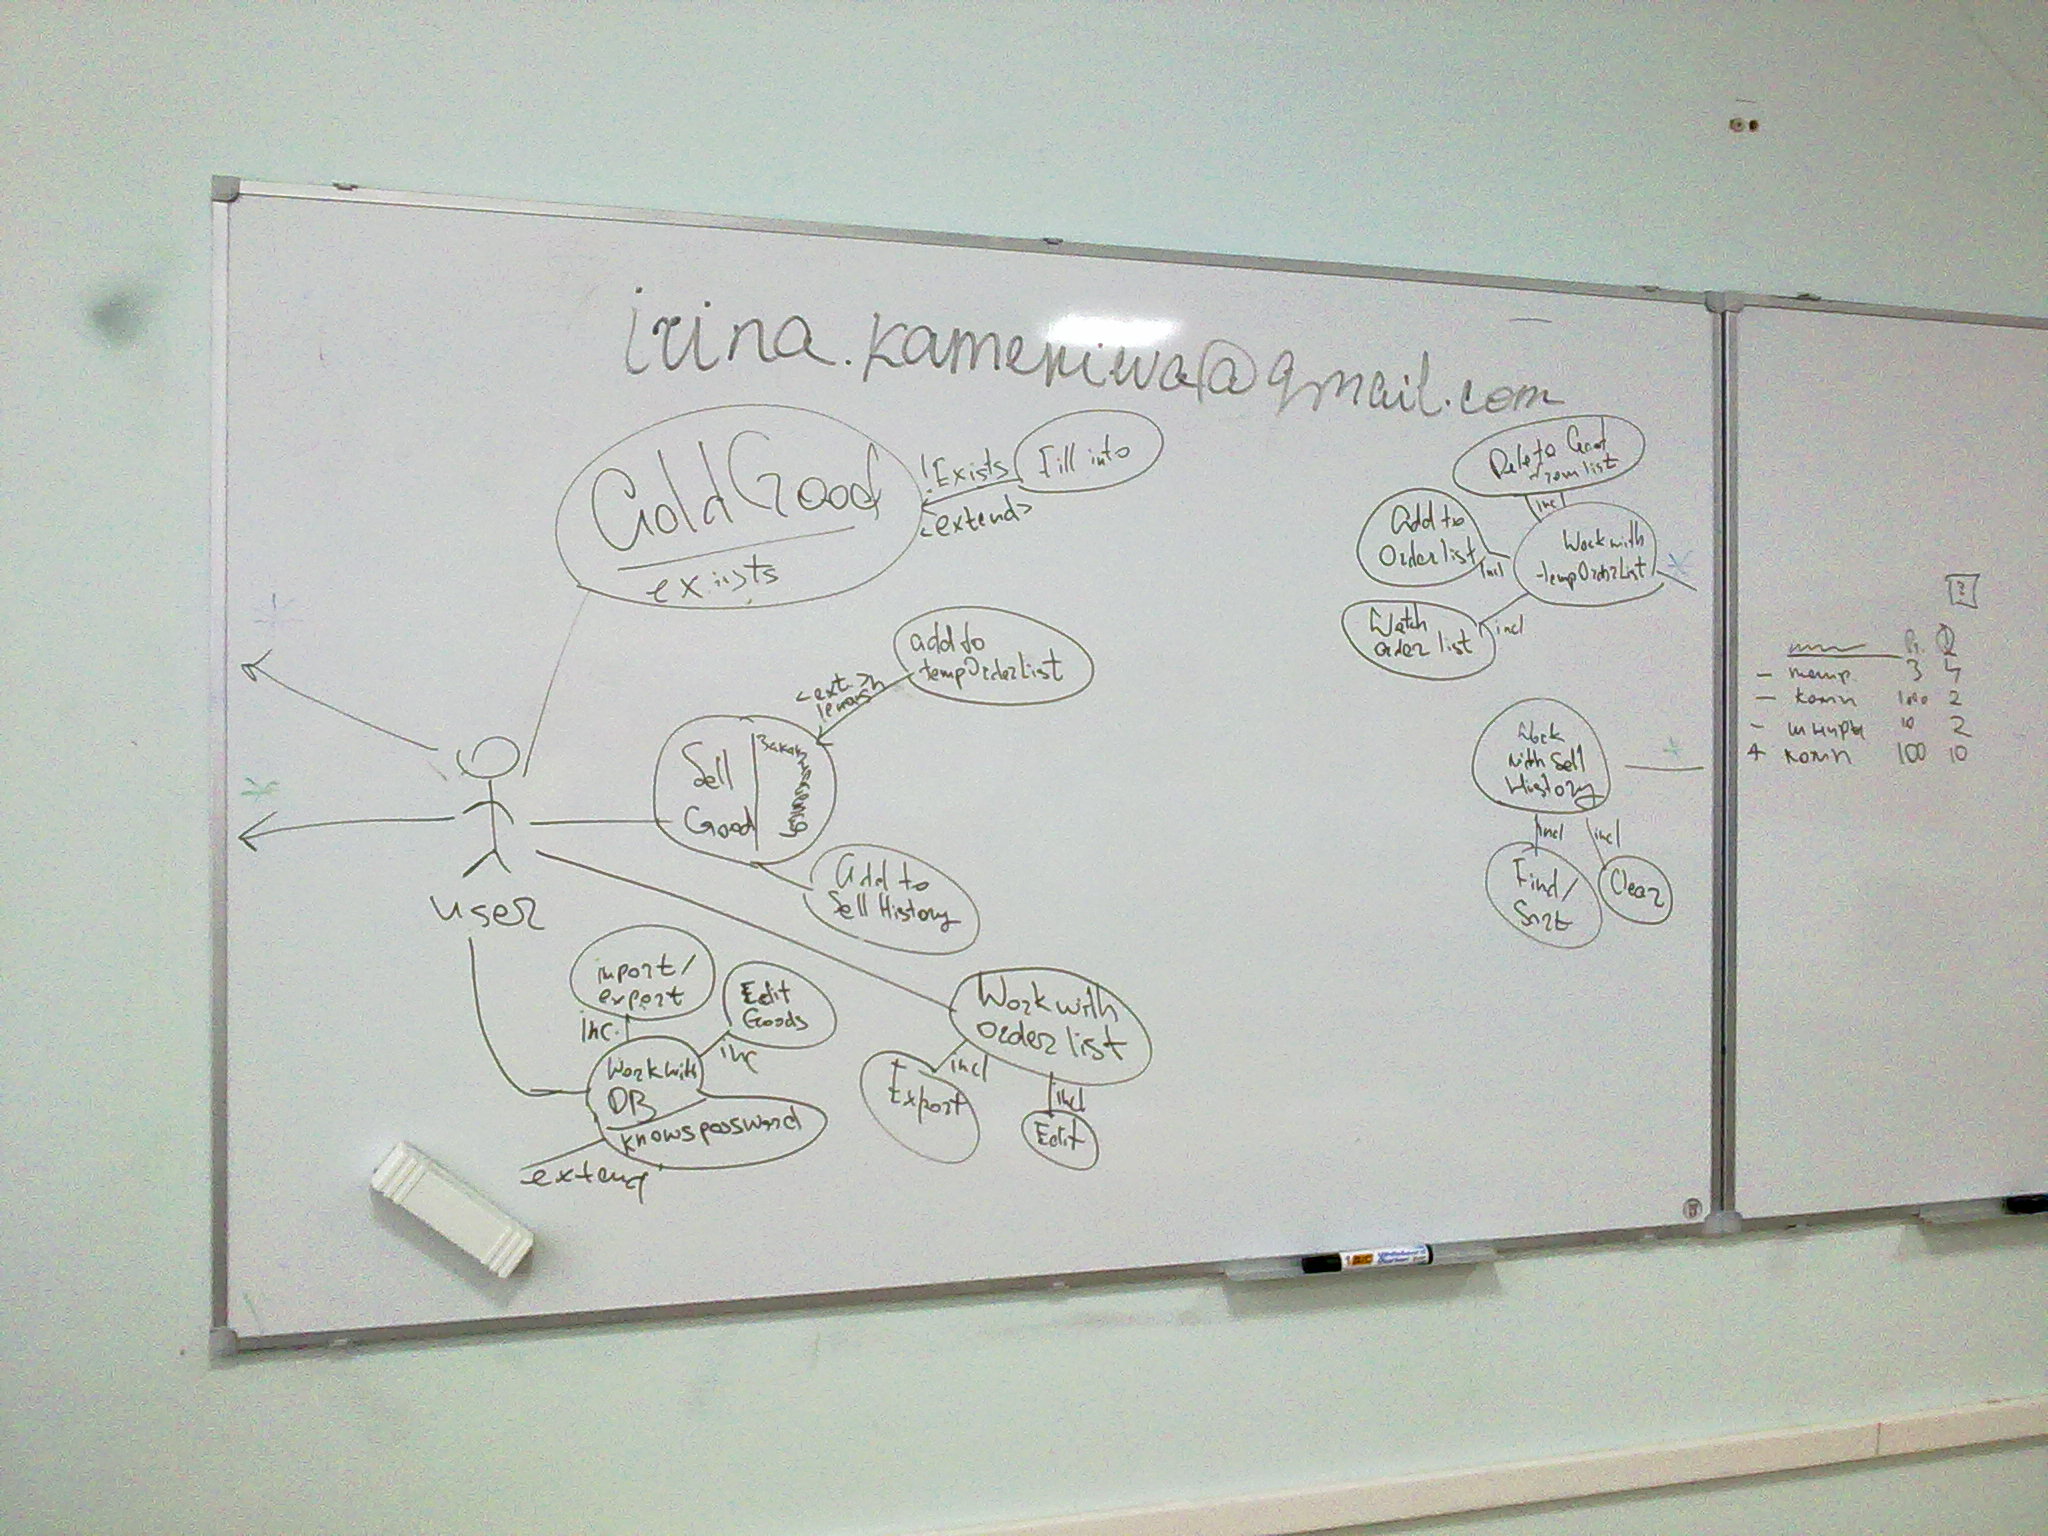 irina.kameniwa@gmail.com
exists
!Exists
<extend>
Fill into
add to
tempOrderList
<ext.>
Sell
Good
Add to
Sell History
user
import/
export
inc.
Edit
Goods
inc
Work with
DB
knows password
extend
Work with
order list
incl
Export
incl
Edit
Delete Good
from list
incl
Add to
Order list
incl
Work with
tempOrderList
Watch
order list
incl
Work
with Sell
History
incl
incl
Find/
Sort
Clear
?
3 4
— комп 2
— шнуры 10 2
+ комп 100 10
BIC